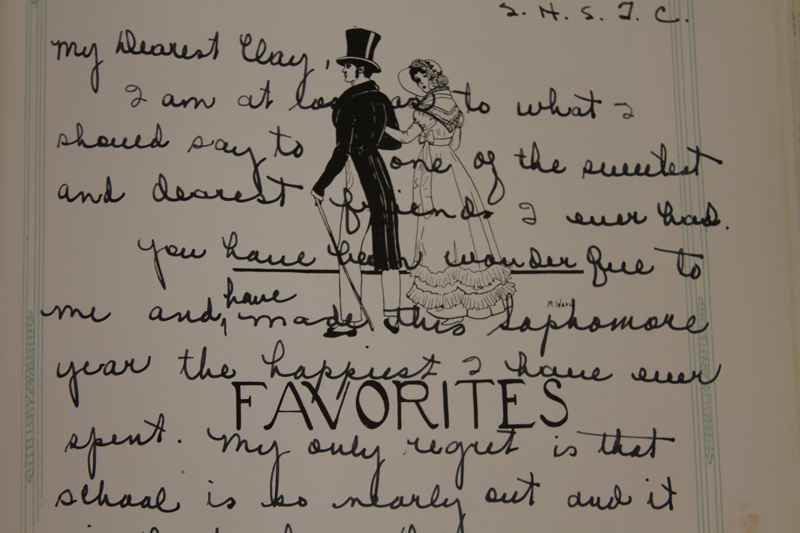 S. H. S. T. C.
My Dearest Clay,
I am at loss as to what I
should say to one of the sweetest
and dearest friends I ever had.
You have been wonderful to
me and have made this sophomore
year the happiest I have ever
FAVORITES
spent. My only regret is that
school is so nearly out and it